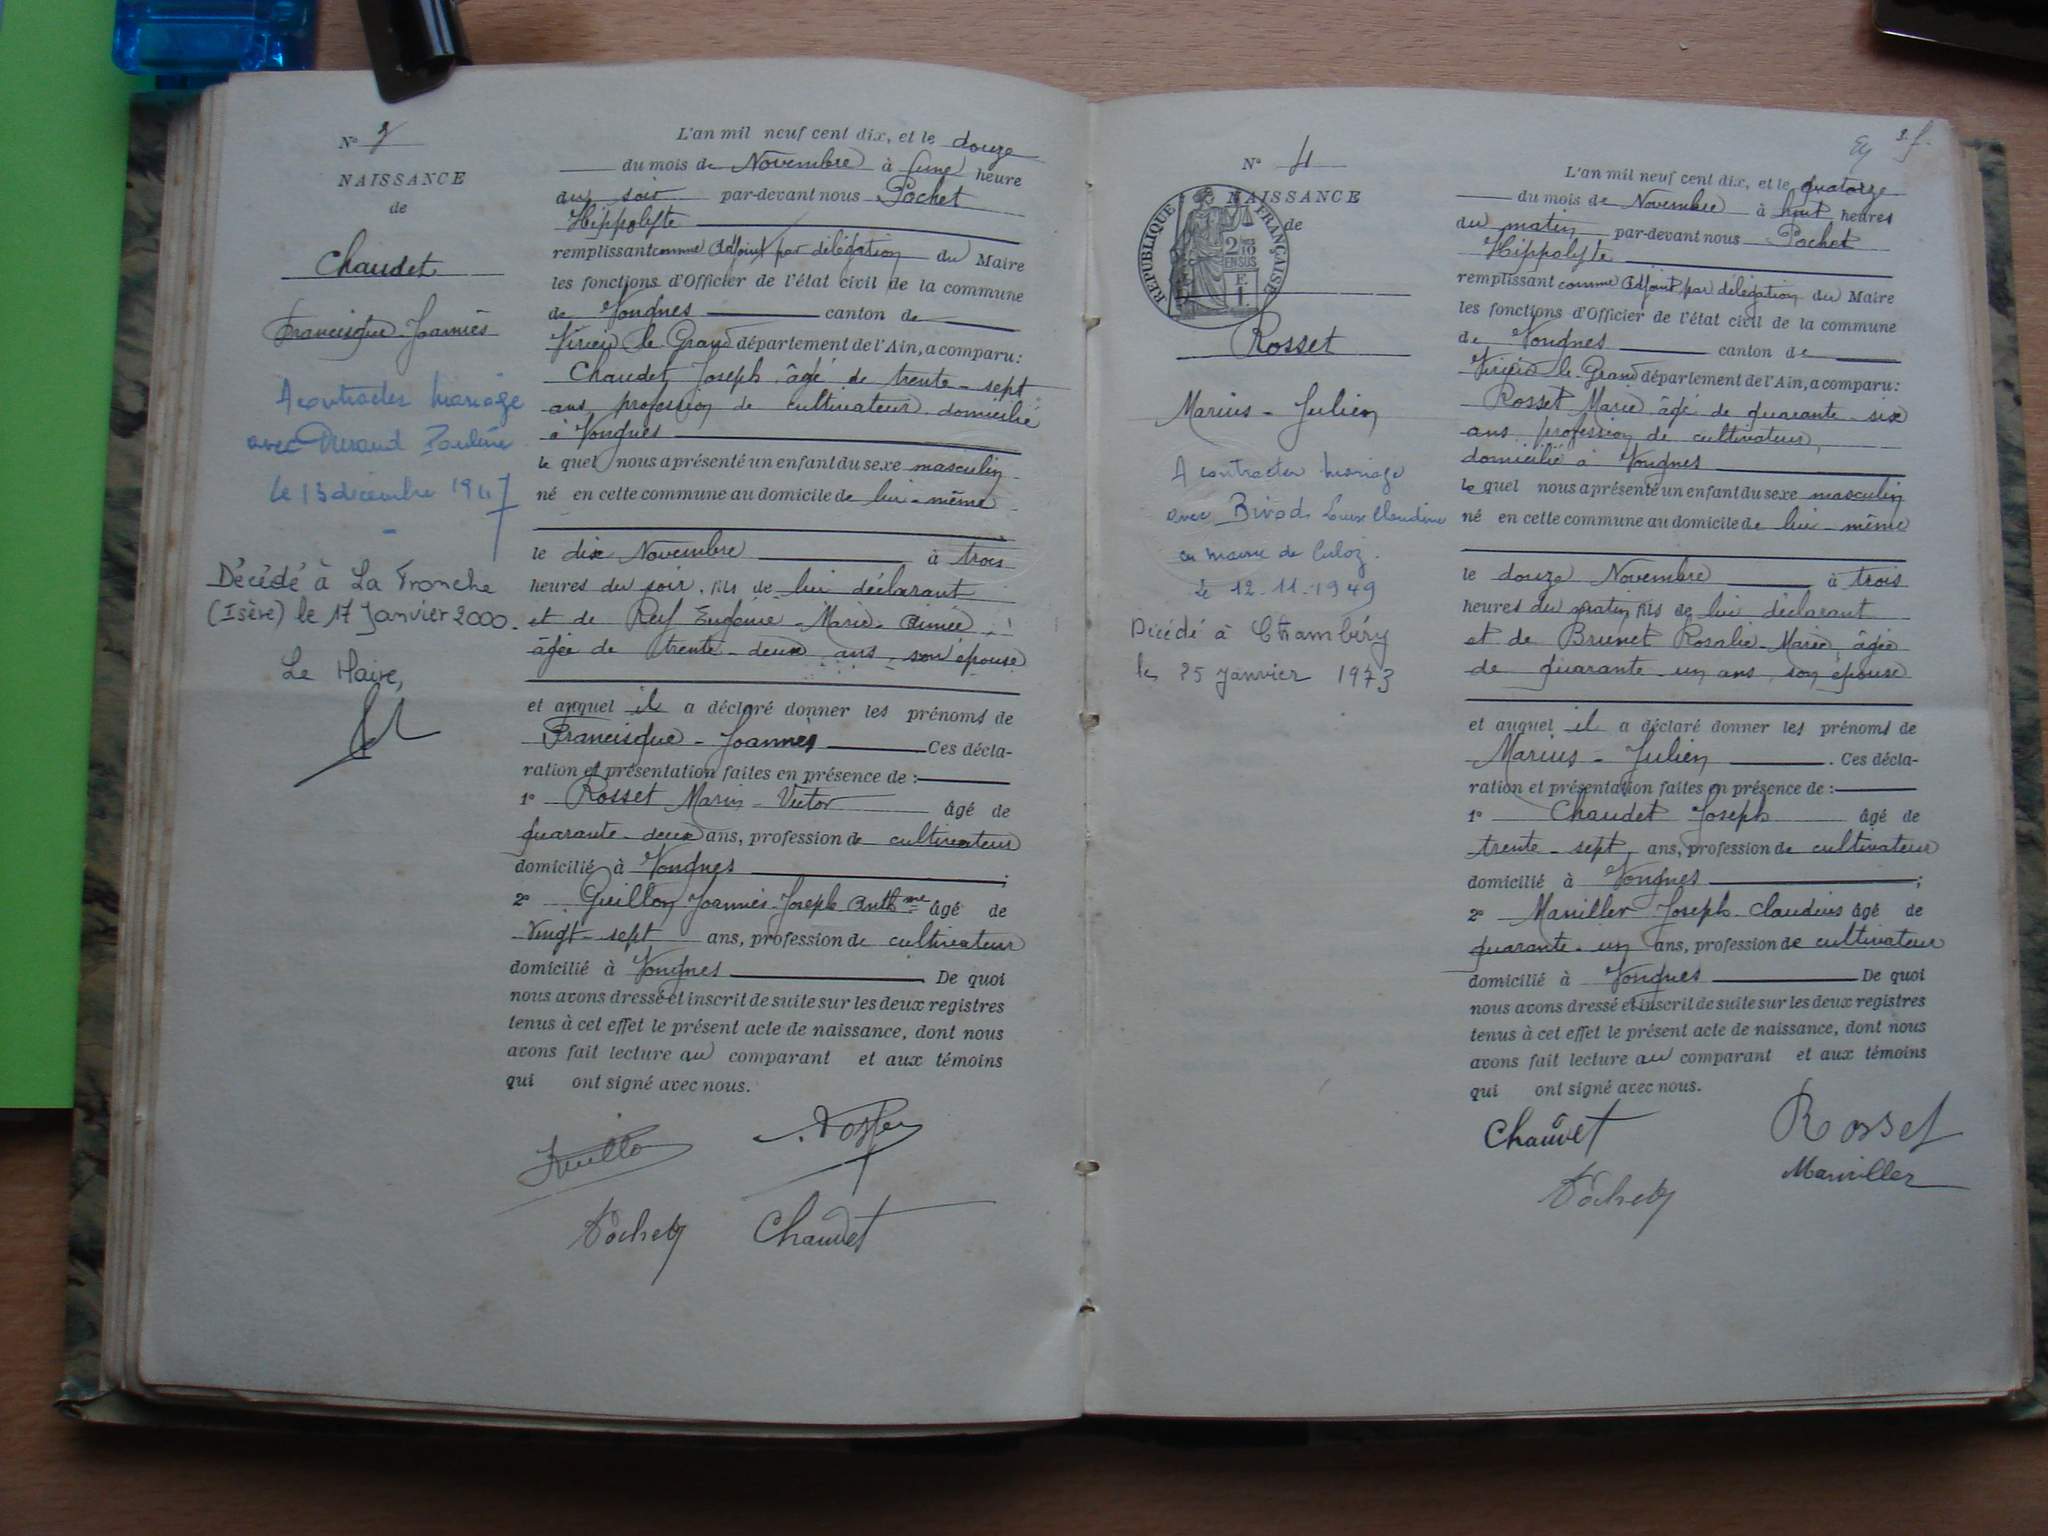 N° 3
NAISSANCE
de
Chaudet
Francisque Joannès
A contracter mariage
avec Durand Pauline
le 13 décembre 1947
Décédé à La Tronche
(Isère) le 17 Janvier 2000.
Le Maire,
L'an mil neuf cent dix, et le douze
du mois de Novembre à une heure
du soir par-devant nous Pochet
Hippolyte
remplissant comme Adjoint par délégation du Maire
les fonctions d'Officier de l'état civil de la commune
de Vongnes canton de
Virieu le Grand département de l'Ain, a comparu:
Chaudet Joseph âgé de trente-sept
ans profession de cultivateur domicilié
à Vongnes
le quel nous a présenté un enfant du sexe masculin
né en cette commune au domicile de lui-même
le dix Novembre à trois
heures du soir, fils de lui déclarant
et de Rey Eugénie-Marie-Aimée
âgée de trente-deux ans, son épouse
et auquel il a déclaré donner les prénoms de
Francisque-Joannès Ces décla-
ration et présentation faites en présence de:
1° Rosset Marin-Victor âgé de
quarante-deux ans, profession de cultivateur
domicilié à Vongnes;
2° Guillon Joannès-Joseph Anthme âgé de
vingt-sept ans, profession de cultivateur
domicilié à Vongnes De quoi
nous avons dressé et inscrit de suite sur les deux registres
tenus à cet effet le présent acte de naissance, dont nous
avons fait lecture au comparant et aux témoins
qui ont signé avec nous.
Pochet Chaudet
N° 4
NAISSANCE
de
RÉPUBLIQUE FRANÇAISE
Rosset
Marius-Julien
A contracter mariage
avec Louise Claudine
en mairie de Culoz.
le 12-11-1949
Décédé à Chambéry
le 25 Janvier 1973
L'an mil neuf cent dix, et le quatorze
du mois de Novembre à huit heures
du matin par-devant nous Pochet
Hippolyte
remplissant comme Adjoint par délégation du Maire
les fonctions d'Officier de l'état civil de la commune
de Vongnes canton de
Virieu le Grand département de l'Ain, a comparu:
Rosset Marie âgé de quarante-six
ans, profession de cultivateur,
domicilié à Vongnes
le quel nous a présenté un enfant du sexe masculin
né en cette commune au domicile de lui-même
le douze Novembre à trois
heures du matin, fils de lui déclarant
et de Brunet Rosalie-Marie, âgée
de quarante-un ans, son épouse
et auquel il a déclaré donner les prénoms de
Marius-Julien. Ces décla-
ration et présentation faites en présence de:
1° Chaudet Joseph âgé de
trente-sept ans, profession de cultivateur
domicilié à Vongnes;
2° Maniller Joseph-Claudius âgé de
quarante-un ans, profession de cultivateur
domicilié à Vongnes De quoi
nous avons dressé et inscrit de suite sur les deux registres
tenus à cet effet le présent acte de naissance, dont nous
avons fait lecture au comparant et aux témoins
qui ont signé avec nous.
Chaudet Rosset
Pochet Maniller